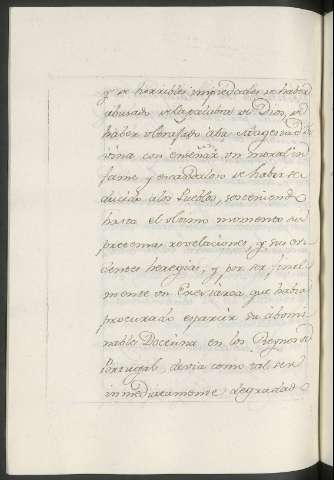 y de horribles impiedades, de haber
abusado de la palabra de Dios, de
haber ultrajado a la Magestad di
vina con enseñar un moral in
fame y escandaloso de haber se
ducido a los Pueblos, sosteniendo
hasta el ultimo momento sus
pretensas revelaciones, y sus evi
dentes heregias; y por ser final
mente un Eresiarca que habia
procurado esparcir su abomi
nable Doctrina en los Reynos de
Portugal, devia como tal ser
inmediatamente degradado